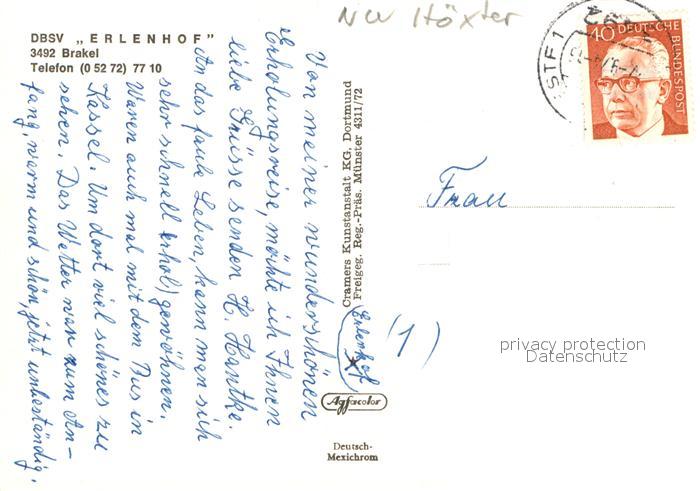 NW Höxter
DBSV „ERLENHOF"
3492 Brakel
Telefon (0 52 72) 77 10
Von meiner wunderschönen
Erholungsreise, möchte ich Ihnen
liebe Grüsse senden H. Hantke.
An das faule Leben, kann man sich
sehr schnell (erhol) gewöhnen.
Waren auch mal mit dem Bus in
Kassel. Um dort viel schönes zu
sehen. Das Wetter war zum An-
fang, warm und schön, jetzt unbeständig.
Cramers Kunstanstalt KG, Dortmund
Freigeg. Reg.-Präs. Münster 4311/72
(Erlenhof)
(1)
Agfacolor
Deutsch-
Mexichrom
STF 1
40 DEUTSCHE
BUNDESPOST
Frau
privacy protection
Datenschutz